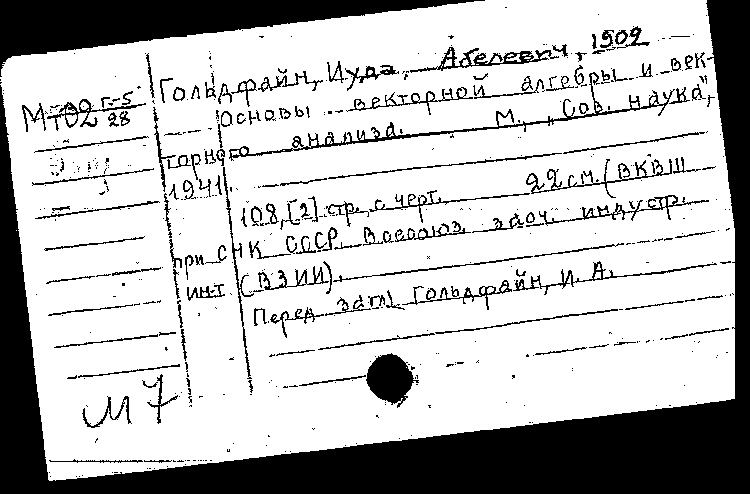 Гольдфайн, Иуда Абелевич, 1909
Мт02 Г-5/28
Основы векторной алгебры и век-
торного анализа. М., "Сов. наука",
1941.
108, [2] стр. с черт. 22 см. (ВКВШ
при СНК СССР. Всесоюз. заоч. индустр.
ин-т (ВЗИИ).
Перед загл. Гольдфайн, И. А.
М7